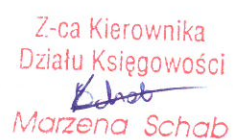 Z-ca Kierownika
Działu Księgowości
Marzena Schab